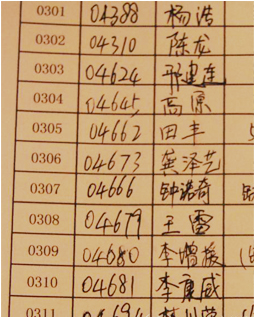 0301 04388 杨浩
0302 04310 陈龙
0303 04624 邢建连
0304 04645 高原
0305 04662 田丰
0306 04673 龚泽艺
0307 04666 钟诺奇
0308 04679 王雷
0309 04680 李增援
0310 04681 李康威
0311